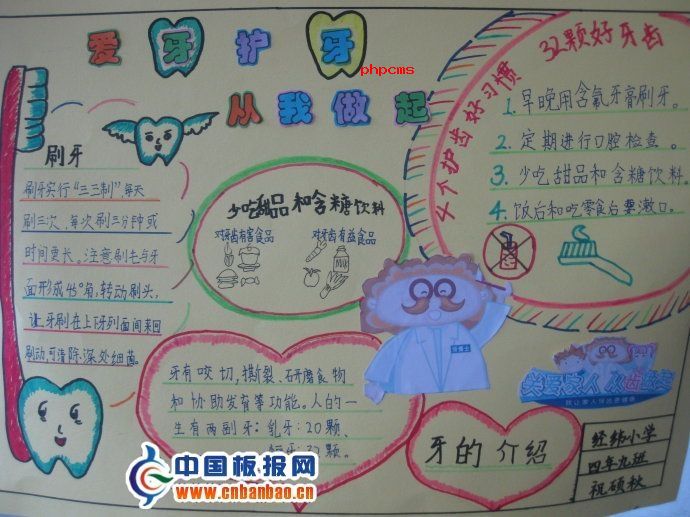 爱牙护牙
phpcms
从我做起
刷牙
刷牙实行“三三制”,每天
刷三次,每次刷三分钟或
时间更长。注意刷毛与牙
面形成45°角,转动刷头,
让牙刷在上下牙列面间来回
刷动,可清除深处细菌。
少吃甜品和含糖饮料
对牙齿有害食品
对牙齿有益食品
MILK
4个护齿好习惯 32颗好牙齿
1. 早晚用含氟牙膏刷牙。
2. 定期进行口腔检查。
3. 少吃甜品和含糖饮料。
4. 饭后和吃零食后要漱口。
牙有咬切,撕裂、研磨食物
和协助发音等功能。人的一
生有两副牙:乳牙:20颗、
牙的介绍
经纬小学
四年九班
祝硕秋
中国板报网
www.cnbanbao.cn